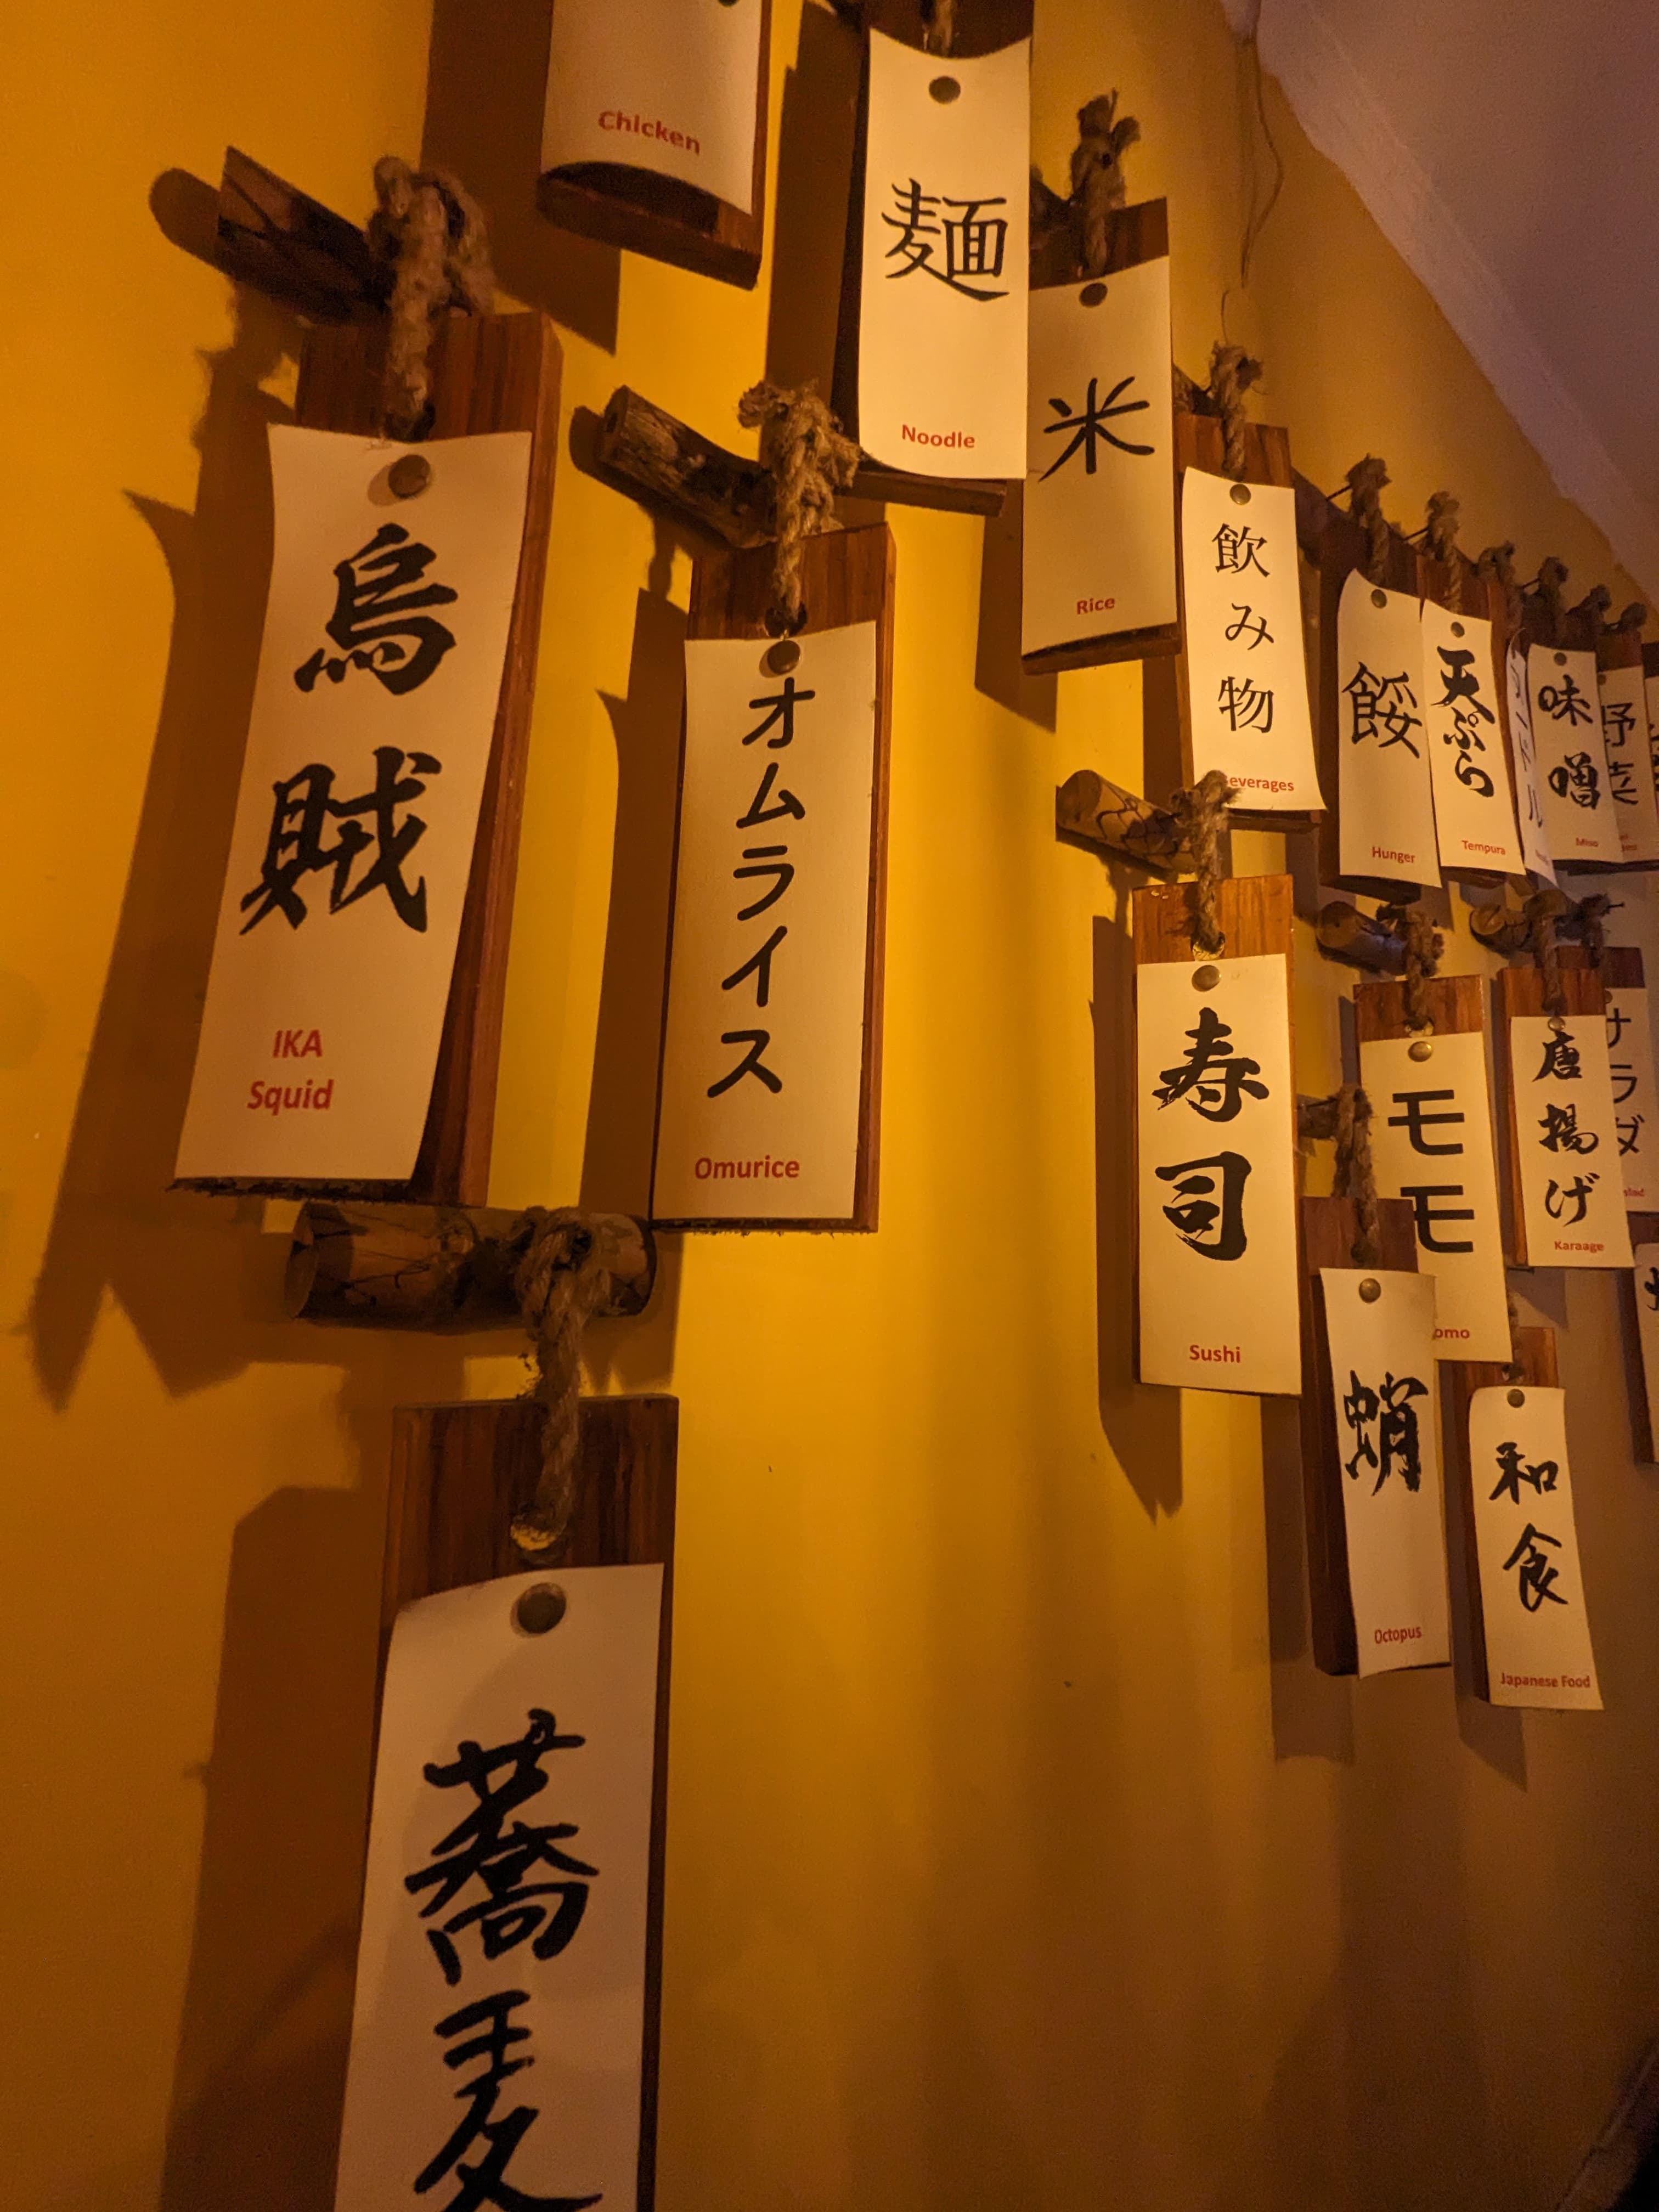 Chicken
麺
Noodle
米
Rice
飲み物
everages
餒
Hunger
天ぷら
Tempura
味噌
Miso
野菜
烏賊
IKA
Squid
オムライス
Omurice
寿司
Sushi
モモ
omo
唐揚げ
Karaage
サラダ
蛸
Octopus
和食
Japanese Food
蕎麦